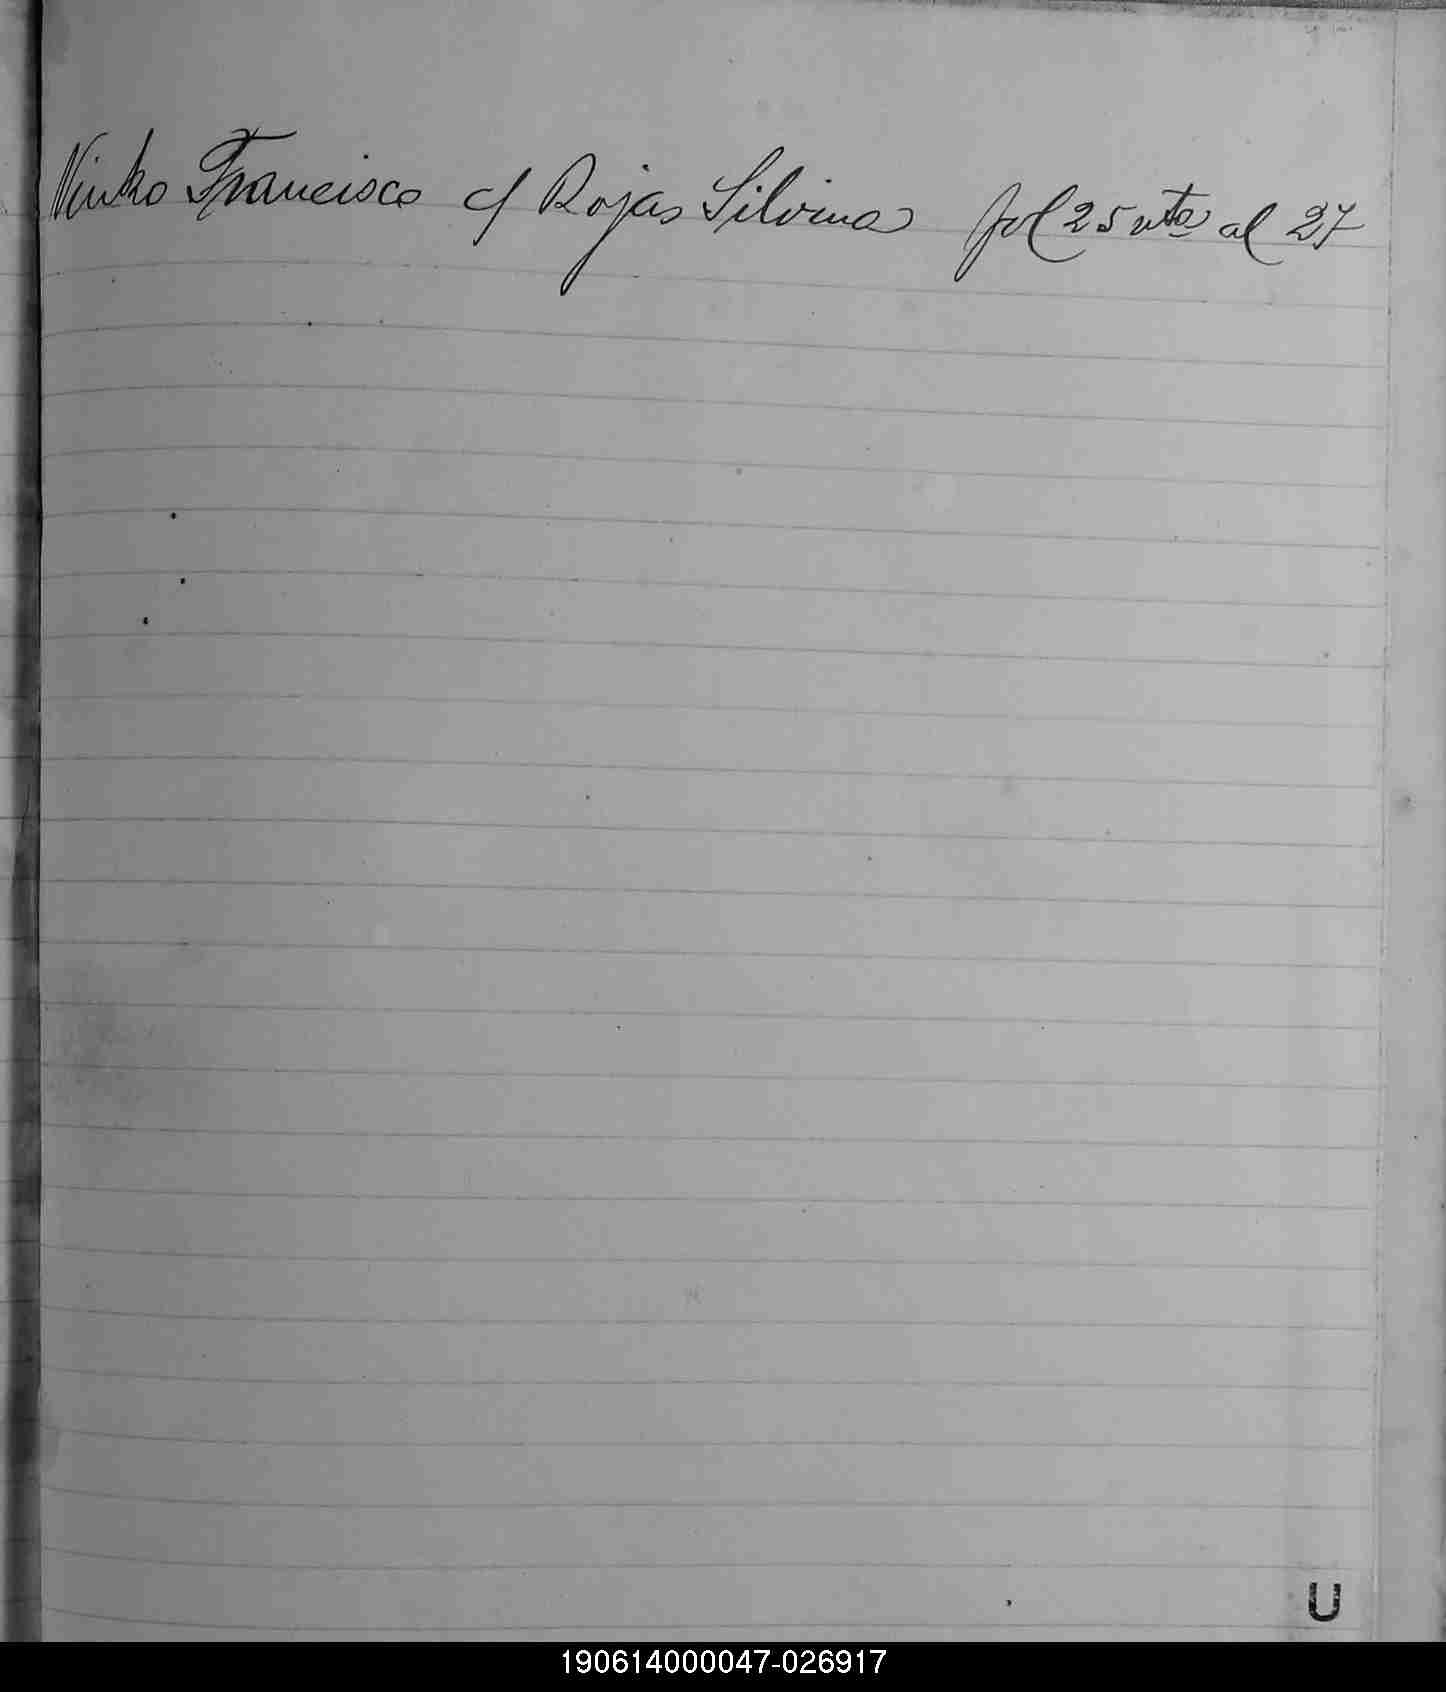 Ninko Francisco c/ Rojas Silvina fol 25 vta al 27
U
190614000047-026917